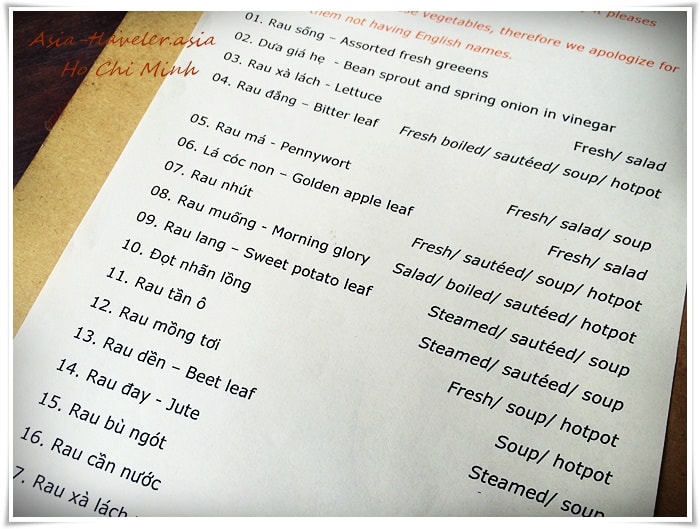 se vegetables, therefore we apologize for
them not having English names.
pleases
01. Rau sống – Assorted fresh greeens
02. Dưa giá hẹ - Bean sprout and spring onion in vinegar
03. Rau xà lách - Lettuce Fresh/ salad
04. Rau đắng – Bitter leaf Fresh boiled/ sautéed/ soup/ hotpot
05. Rau má - Pennywort Fresh/ salad/ soup
06. Lá cóc non – Golden apple leaf Fresh/ salad
07. Rau nhút Fresh/ sautéed/ soup/ hotpot
08. Rau muống - Morning glory Salad/ boiled/ sautéed/ hotpot
09. Rau lang – Sweet potato leaf Steamed/ sautéed/ soup
10. Đọt nhãn lồng Steamed/ sautéed/ soup
11. Rau tần ô Fresh/ soup/ hotpot
12. Rau mồng tơi Soup/ hotpot
13. Rau dền – Beet leaf Steamed/ soup
14. Rau đay - Jute
15. Rau bù ngót
16. Rau cần nước
7. Rau xà lách
Asia-Traveler.asia
Ho Chi Minh